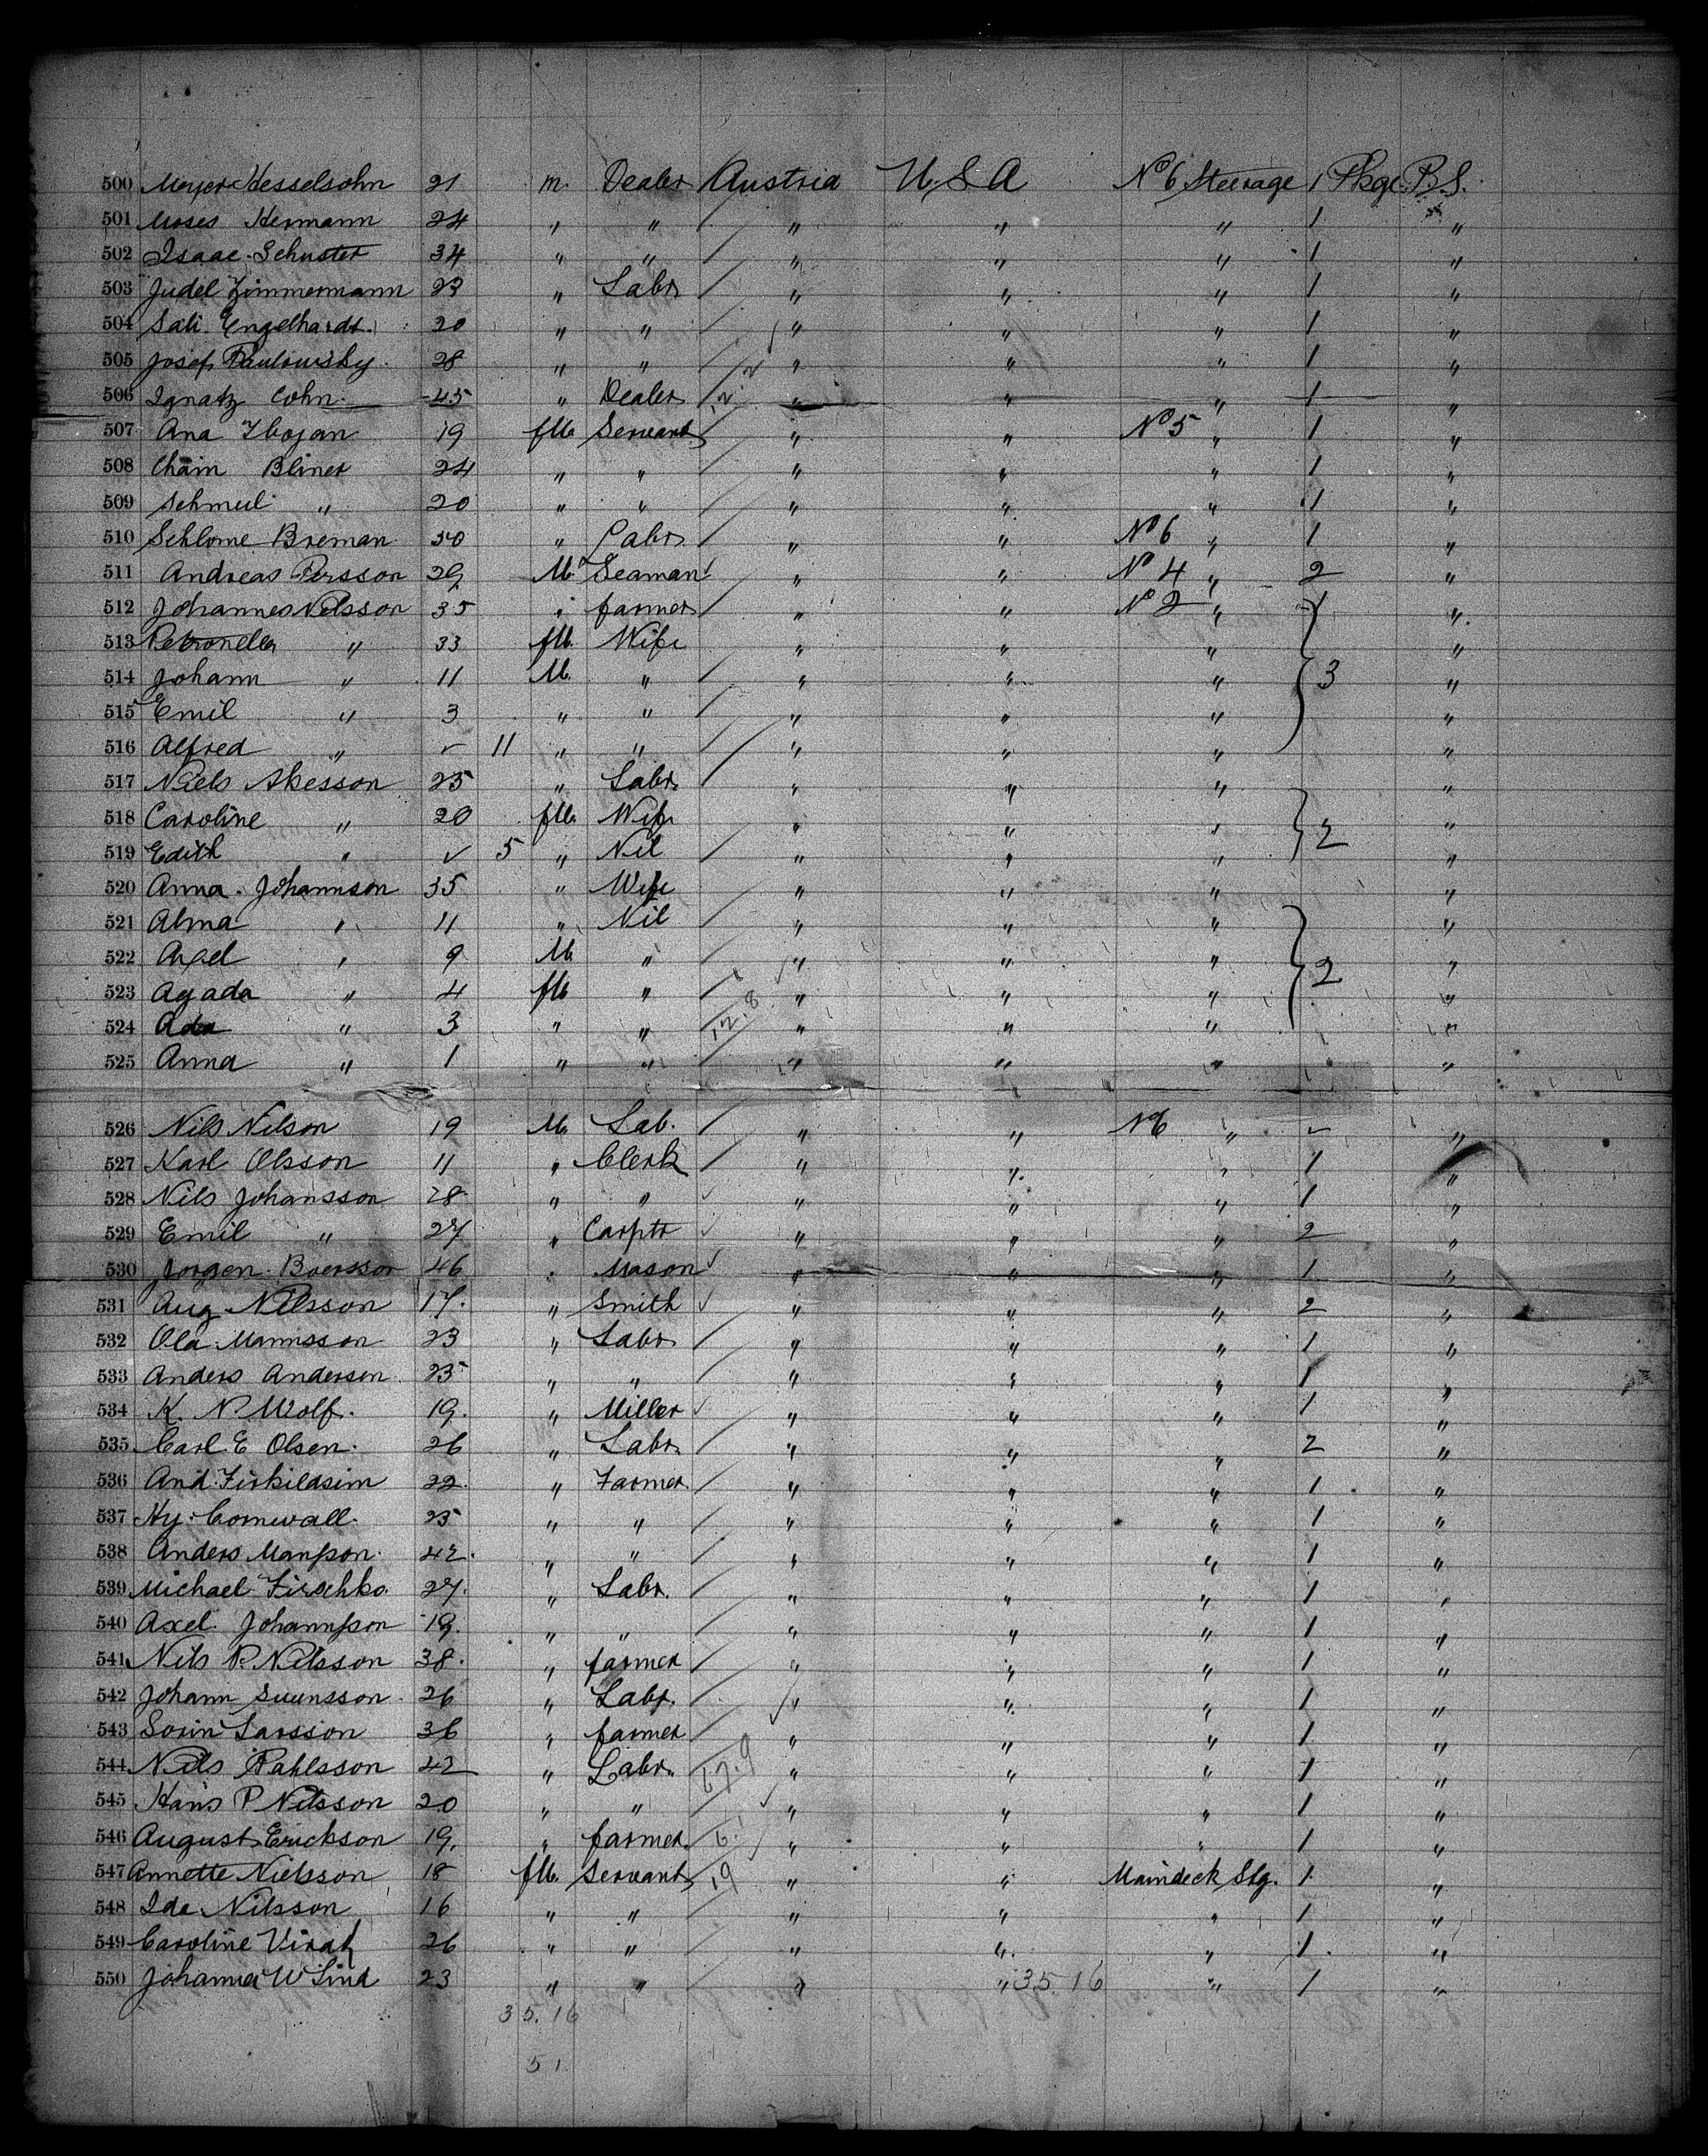 500 Meyer Hesselsohn 21 m. Dealer Austria U.S.A No 6 Steerage 1 Pkge B.S.
501 Moses Hermann 24 " " / " " " 1 "
502 Isaac Schuster 34 " " / " " " 1 "
503 Judel Zimmermann 23 " Labr / " " " 1 "
504 Sali Engelhardt 20 " " / " " " 1 "
505 Josef Paulowsky 28 " " / " " " 1 "
506 Ignatz Cohn 45 " Dealer " " " 1 "
507 Ana 19 fM. Servant " " No 5 " 1 "
508 Chain Bliner 24 " " / " " " 1 "
509 Schmeul " 20 " " / " " " 1 "
510 Schlome Breman " Labr / " " No 6 " 1 "
511 Andreas Persson 29 M. Seaman " " No 4 " 2 "
512 Johannes Nilsson 35 " farmer / " " No 2 " "
513 Petronella " 33 fM. Wife " " " "
514 Johann " 11 M. " / " " " 3 "
515 Emil " 3 " " / " " " "
516 Alfred " ✓ 11 " " / " " " "
517 Niels Akesson 25 " Labr. / " " " "
518 Caroline " 20 fM. Wife " " " 2 "
519 Edith " ✓ 5 " Nil / " " " "
520 Anna Johannson 35 " Wife " " " "
521 Alma " 11 " Nil / " " " "
522 Axel " 9 M. " / " " " 2 "
523 Agada " 4 fM " / " " " "
524 Ada " 3 " " 12.8 " " " "
525 Anna " 1 " " / " " " "
526 Nils Nilson 19 M. Lab. / " " No 6 " ✓ "
527 Karl Olsson 11 " Clerk / " " " 1 "
528 Nils Johansson 28 " " ✓ " " " 1 "
529 Emil " 27 " Carptr ✓ " " " 2 "
530 Jorgen Boersson 46 " Mason ✓ " " " 1 "
531 Aug Nilsson 17. " Smith ✓ " " " 2 "
532 Ola Mannsson 23 " Labr. / " " " 1 "
533 Anders Andersen 25 " " / " " " 1 "
534 K. N. Wolf. 19. " Miller ✓ " " " 1 "
535 Carl E Olsen. 26 " Labr. / " " " 2 "
536 And. 22. " Farmer / " " " 1 "
537 Hy. Cornwall. 25 " " / " " " 1 "
538 Anders Manſson 42. " " / " " " 1 "
539 Michael Firschko 27. " Labr. / " " " 1 "
540 Axel Johannſson 19. " " / " " " 1 "
541 Nils P. Nilsson 38. " farmer / " " " 1 "
542 Johann Suunsson 26 " Labr. / " " " 1 "
543 Sorin Larsson 36 " farmer / " " " 1 "
544 Nils Pahlsson 42 " Labr. " " " 1 "
545 Hans P Nilsson 20 " " / " " " 1 "
546 August Erickson 19. " farmer. " " " 1 "
547 Annette Nielsson 18 fM. Servant 19 " " Maindeck Stg. 1 "
548 Ida Nilsson 16 " " / " " " 1 "
549 Caroline 26 " " / " " " 1 "
550 Johanna W Lind 23 " " / " " 35.16 " 1 "
35.16
51